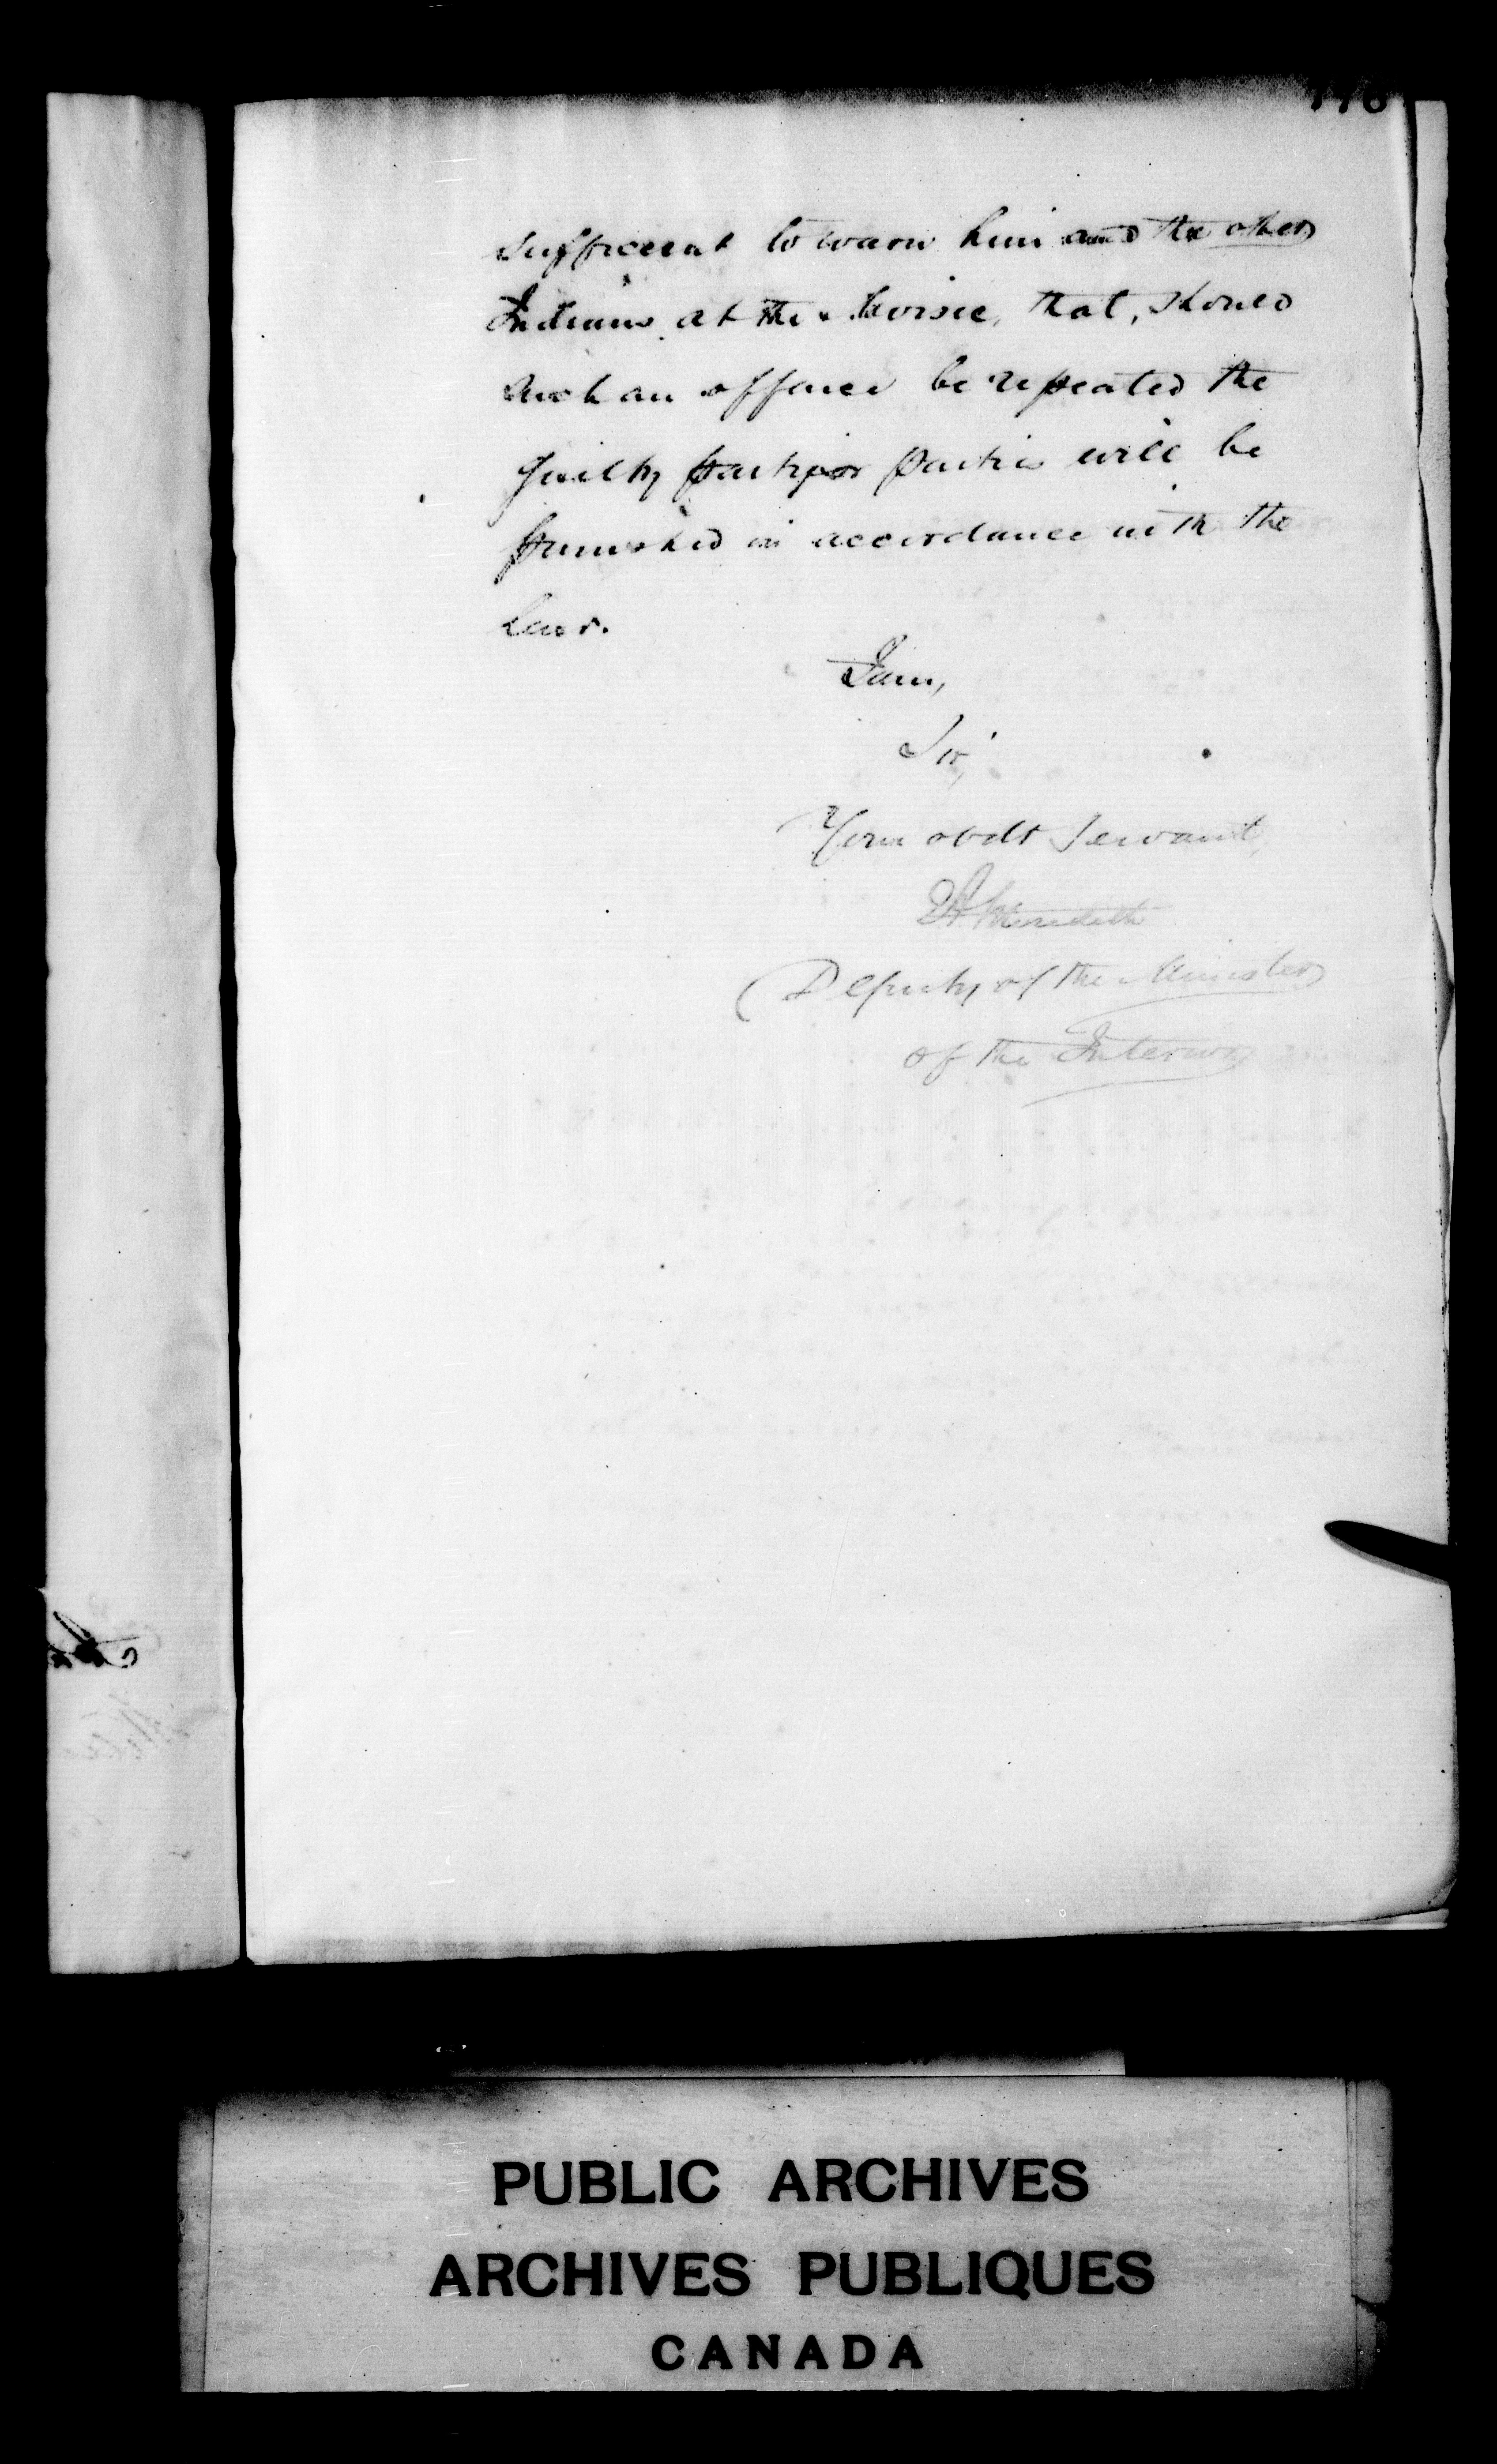 sufficient to warn him and the other
Indians at the Moisie, that, should
such an offence be repeated the
guilty party or parties will be
punished in accordance with the
Law.
I am,
Sir,
Your obdt Servant,
Meredith
Deputy of the Minister
of the Interior
PUBLIC ARCHIVES
ARCHIVES PUBLIQUES
CANADA